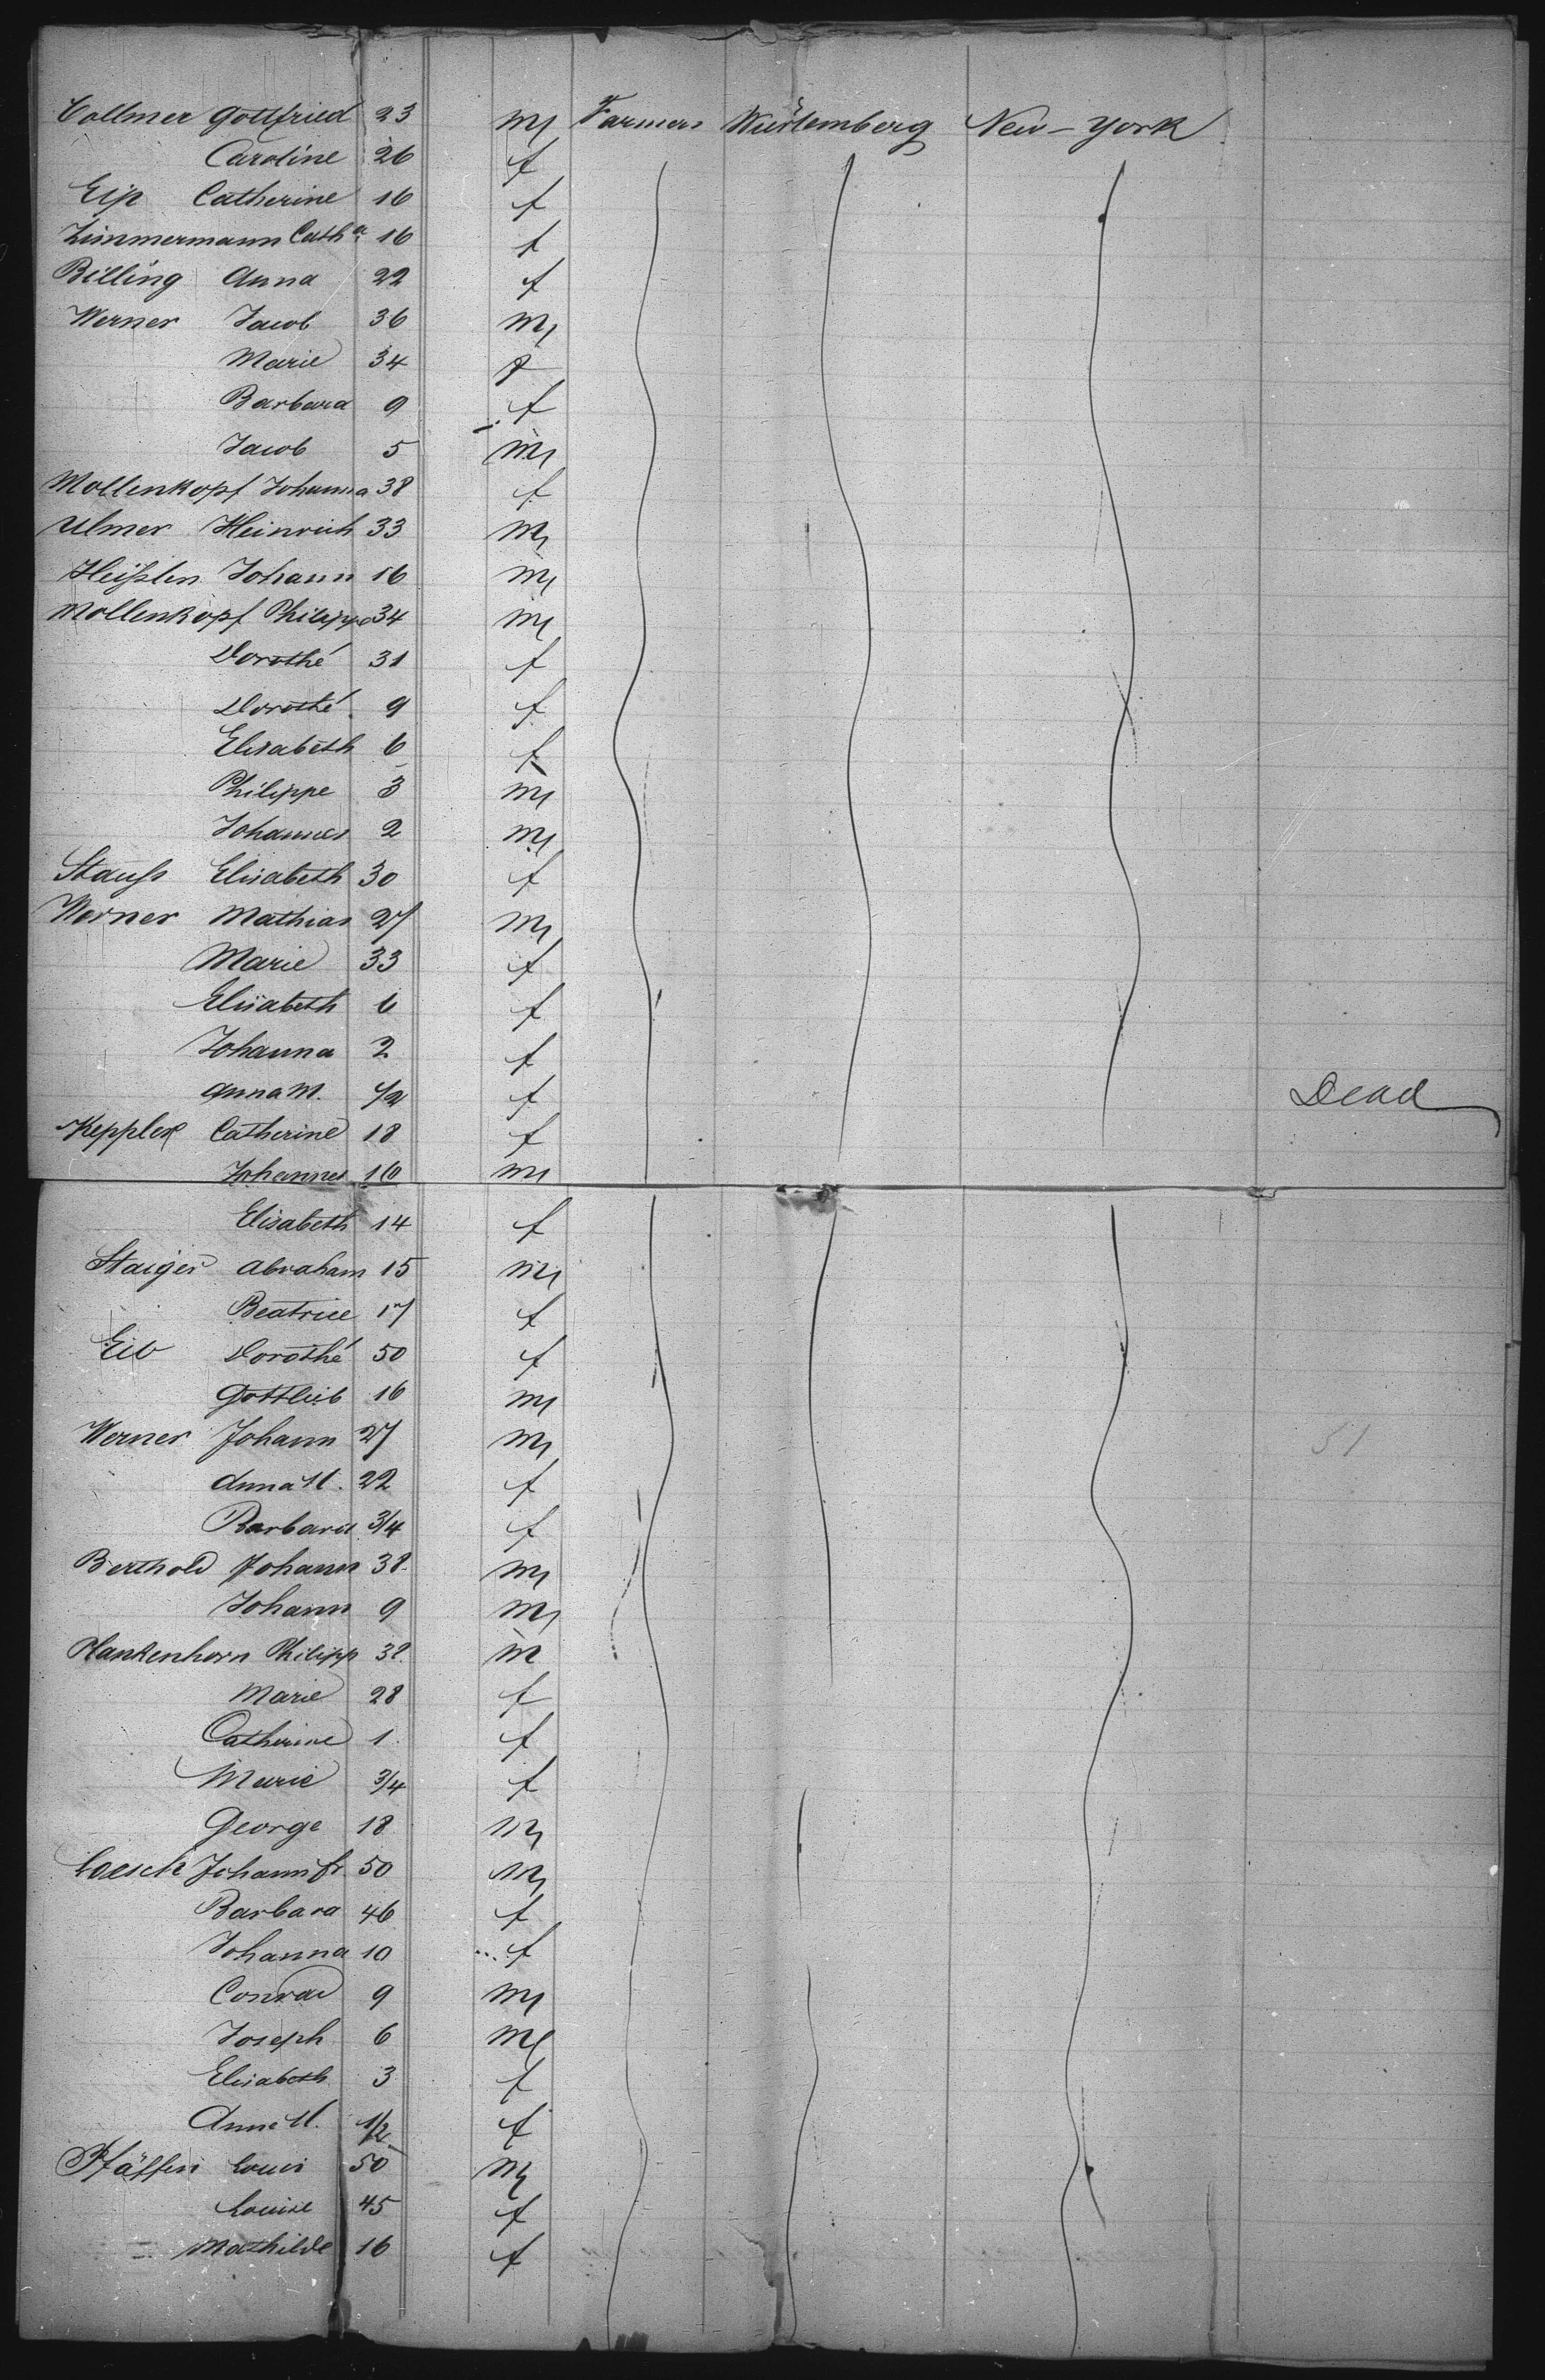 Vollmer Gottfried 23 m Farmers Würtemberg New-York
Caroline 26 f
Eip Catherine 16 f
Zimmermann Cath.a 16 f
Billing Anna 22 f
Werner Jacob 36 m
Marie 34 f
Barbara 9 f
Jacob 5 m
Mollenkopf Johanna 38 f
Ulmer Heinrich 33 m
Johann 16 m
Mollenkopf Philippe 34 m
Dorothé 31 f
Dorothé 9 f
Elisabeth 6 f
Philippe 3 m
Johannes 2 m
Stauß Elisabeth 30 f
Werner Mathias 27 m
Marie 33 f
Elisabeth 6 f
Johanna 2 f
Anna M. 1/2 f Dead
Keppler Catherine 18 f
Johannes 16 m
Elisabeth 14 f
Staiger Abraham 15 m
Beatrice 17 f
Eib Dorothé 50 f
Gottlieb 16 m
Werner Johann 27 m 51
Anna M. 22 f
Barbara 3/4 f
Berthold Johann 38 m
Johann 9 m
Plankenhorn Philipp 38 m
Marie 28 f
Catherine 1 f
Marie 3/4 f
George 18 m
Loesch Johann fr. 50 m
Barbara 46 f
Johanna 10 f
Conrad 9 m
Joseph 6 m
Elisabeth 3 f
Anna M. 1/2 f
Louis 50 m
Louise 45 f
Mathilde 16 f